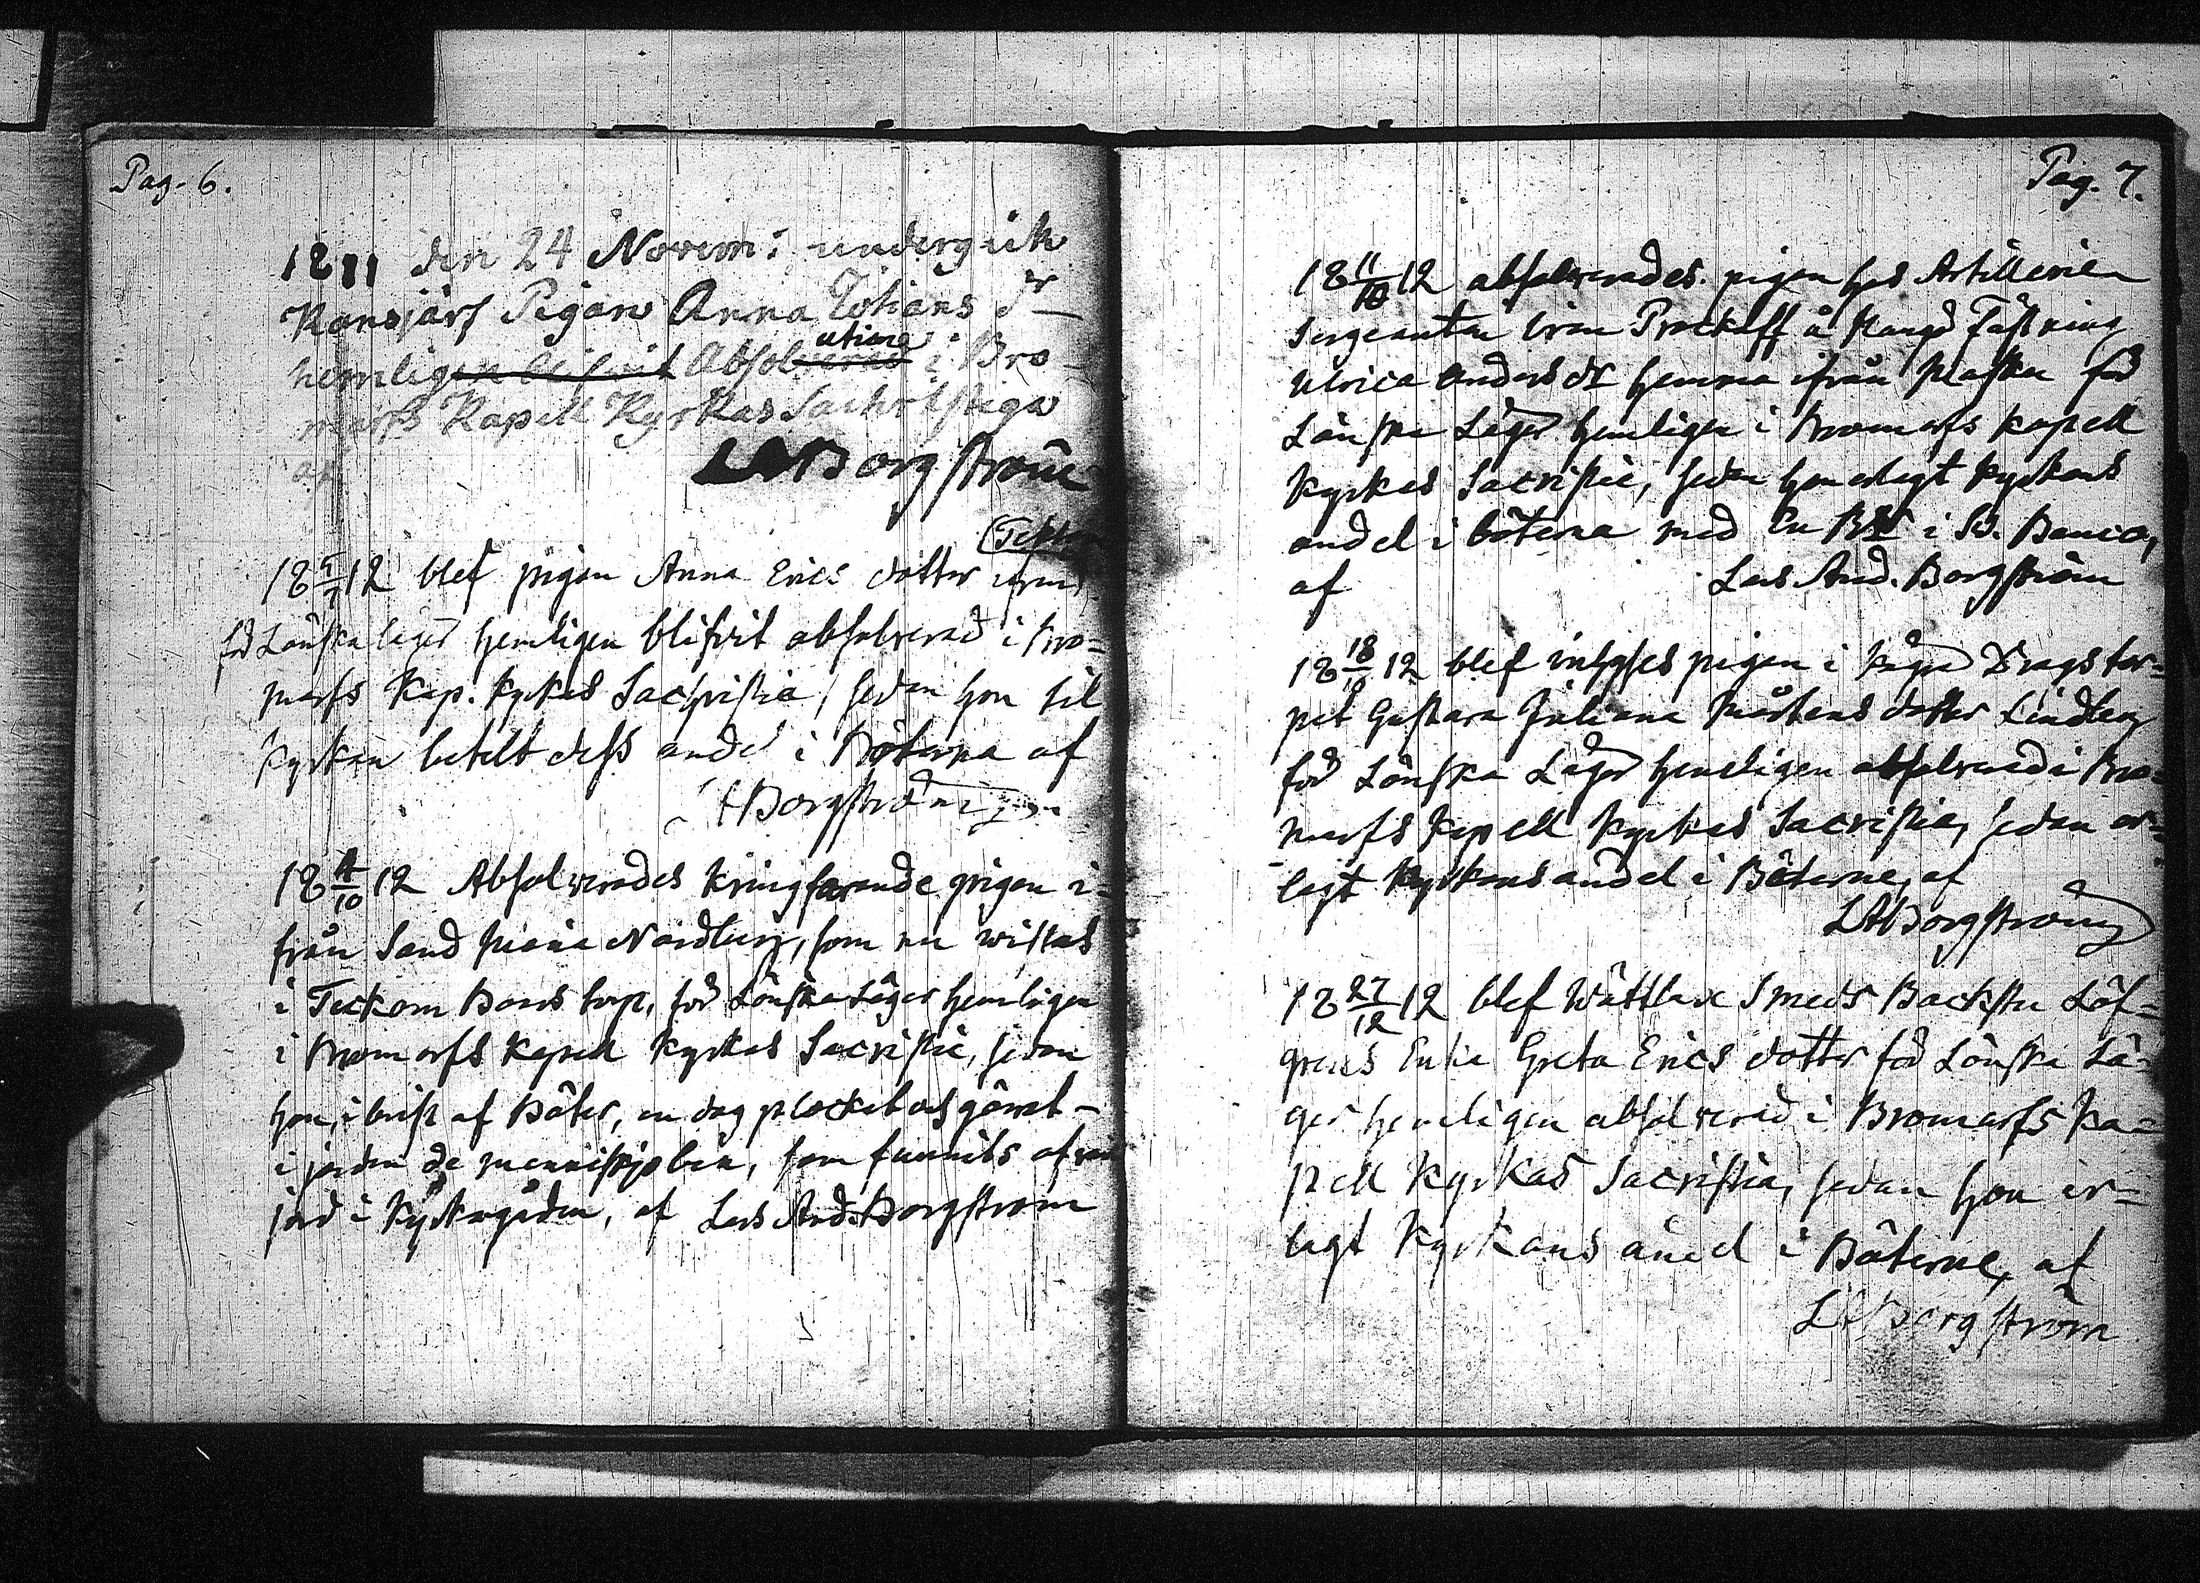 Pag. 6.
1811 den 24 Novem: undergick
Kansjärf Pigan Anna Johans dr
hemligen blifvit Absolverad utione i Bro-
marfs Kapell Kyrkas Sachristiga
af
LABorgström
(Teckom
18 5/7 12 blef pigan Anna Erics dotter ifrån
för Lönska läger hemligen blifvit absolverad i Bro-
marfs Kap. Kyrkas Sachristia, sedan hon til
Kyrkan betalt dess andel i Böterna af
LABorgström
18 4/10 12 Absolverades kringfarande pigan i-
från Sand Maria Nordberg, som nu wistas
i Teckom Bonds torp, för Lönska Läger hemligen
i Bromarfs Kapell Kyrkas Sacristia, sedan
hon, i brist af Böter, en dag plockat och gömt
i jorden de menniskjoben, som funnits ofvan
jord i Kyrkogården, af Lars And. Borgström
Pag. 7.
18 11/10 12 absolverades pigan hos Artilleri
Sergeanten Iwan Prockoff å Hangö Fästning
Ulrica Anders dr hemma ifrån Masku för
Lönska Läger hemligen i Bromarfs Kapell
Kyrkas Sacristia, sedan hon erlagt Kyrkans
andel i böterna med En i Banco,
af Lars And. Borgström
18 18/11 12 blef inhyses pigan i Dragstor-
pet Gustava Juliana Mårtens dotter Lindberg
för Lönska Läger hemligen absolverad i Bro-
marfs Kapell Kyrkas Sacristia, sedan er-
lagt Kyrkans andel i Böterne, af
LABorgström
18 27/12 12 blef Wättlax Smeds Backstu Löf-
grens Enka Greta Erics dotter för Lönska Lä-
ger hemligen absolverad i Bromarfs Ka-
pell Kyrkas Sacristia, sedan hon er-
lagt Kyrkans andel i Böterne, af
LABorgström